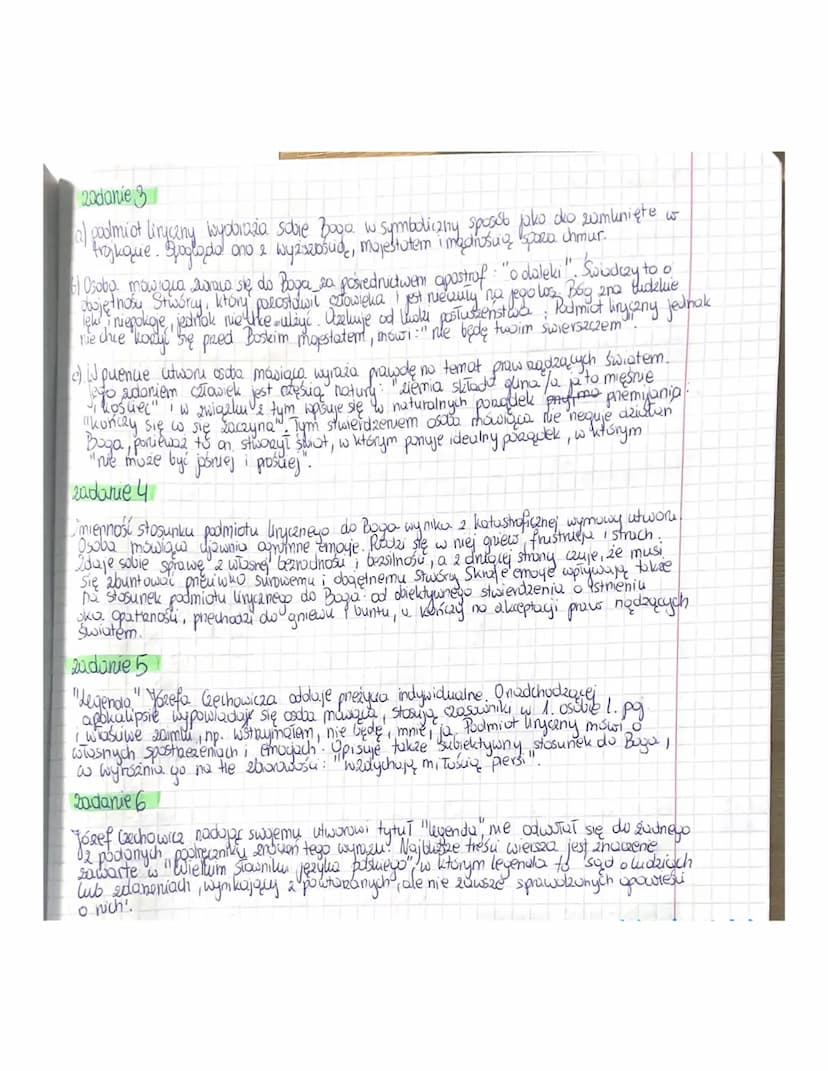 zadanie 3
a) podmiot liryczny wyobraża sobie Boga w symboliczny sposób jako oko zamknięte w
trójkącie. Spogląda ono z wyższością, majestatem i mądrością spoza chmur.
b) Osoba mówiąca zwraca się do Boga za pośrednictwem apostrof: "o daleki". Świadczy to o
obojętności Stwórcy, który pozostawił człowieka i jest nieczuły na jego los. Bóg zna ludzkie
lęki i niepokoje, jednak nie chce ulżyć. Oczekuje od ludzi posłuszeństwa. Podmiot liryczny jednak
nie chce korzyć się przed Boskim majestatem, mówi: "nie będę twoim świerszczem".
c) W puencie utworu osoba mówiąca wyraża prawdę na temat praw rządzących światem.
Jego zdaniem człowiek jest częścią natury: "ziemia składa glina/a ja to mięśnie
i kościec" i w związku z tym wpisuje się w naturalnych porządek przemijania:
"kończy się co się zaczyna". Tym stwierdzeniem osoba mówiąca nie neguje działań
Boga, ponieważ to on stworzył świat, w którym panuje idealny porządek, w którym
"nie może być jaśniej i prościej".
zadanie 4
Zmienność stosunku podmiotu lirycznego do Boga wynika z katastroficznej wymowy utworu.
Osoba mówiąca ujawnia ogromne emocje. Rodzi się w niej gniew, frustracja i strach.
Zdaje sobie sprawę z własnej bezradności i bezsilności, a z drugiej strony czuje, że musi
się zbuntować przeciwko surowemu i obojętnemu Stwórcy. Skrajne emocje wpływają także
na stosunek podmiotu lirycznego do Boga: od obiektywnego stwierdzenia o istnieniu
oka opatrzności, przechodzi do gniewu i buntu, a kończy na akceptacji praw rządzących
światem.
zadanie 5
"Legenda" Józefa Czechowicza oddaje przeżycia indywidualne. O nadchodzącej
apokalipsie wypowiadaje się osoba mówiąca, stosują czasowniki w 1. osobie l. poj
i właściwe zaimki, np. wstrzymałem, nie będę, mnie, ja. Podmiot liryczny mówi o
własnych spostrzeżeniach i emocjach. Opisuje także subiektywny stosunek do Boga,
co wyróżnia go na tle zbiorowości: "wzdychają miłością piersi".
zadanie 6
Józef Czechowicz nadając swojemu utworowi tytuł "legenda", nie odwołał się do żadnego
z podanych podręczniku znaczeń tego wyrazu. Najbliższe treści wiersza jest znaczenie
zawarte w "Wielkim słowniku języka polskiego", w którym legenda to "sąd o ludziach
lub zdarzeniach, wynikający z powtarzanych, ale nie zawsze sprawdzonych opowieści
o nich".